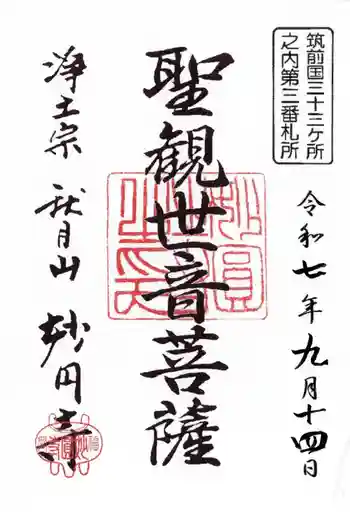 筑前国三十三ヶ所
之内第三番札所
令和七年九月十四日
聖観世音菩薩
浄土宗 秋月山 妙円寺